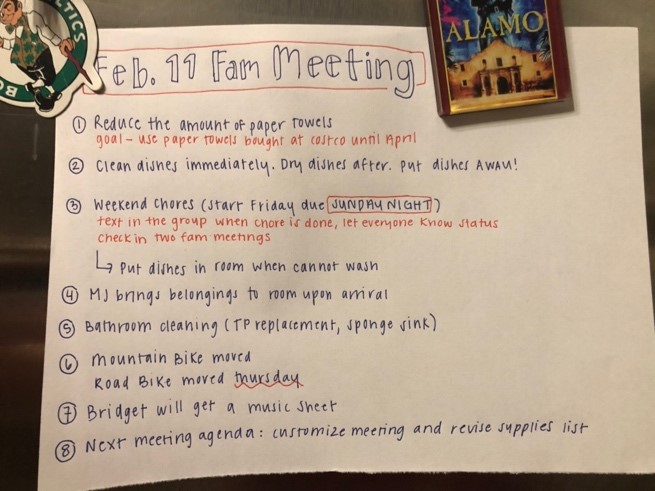 CELTICS
BO
ALAMO
Feb. 11 Fam Meeting
① Reduce the amount of paper towels
goal - use paper towels bought at costco until April
② Clean dishes immediately. Dry dishes after. Put dishes AWAY!
③ Weekend Chores (Start Friday due SUNDAY NIGHT)
text in the group when chore is done, let everyone know status
check in two fam meetings
↳ Put dishes in room when cannot wash
④ MJ brings belongings to room upon arrival
⑤ Bathroom cleaning (TP replacement, sponge sink)
⑥ Mountain Bike moved
Road Bike moved thursday
⑦ Bridget will get a music sheet
⑧ Next meeting agenda: customize meeting and revise supplies list